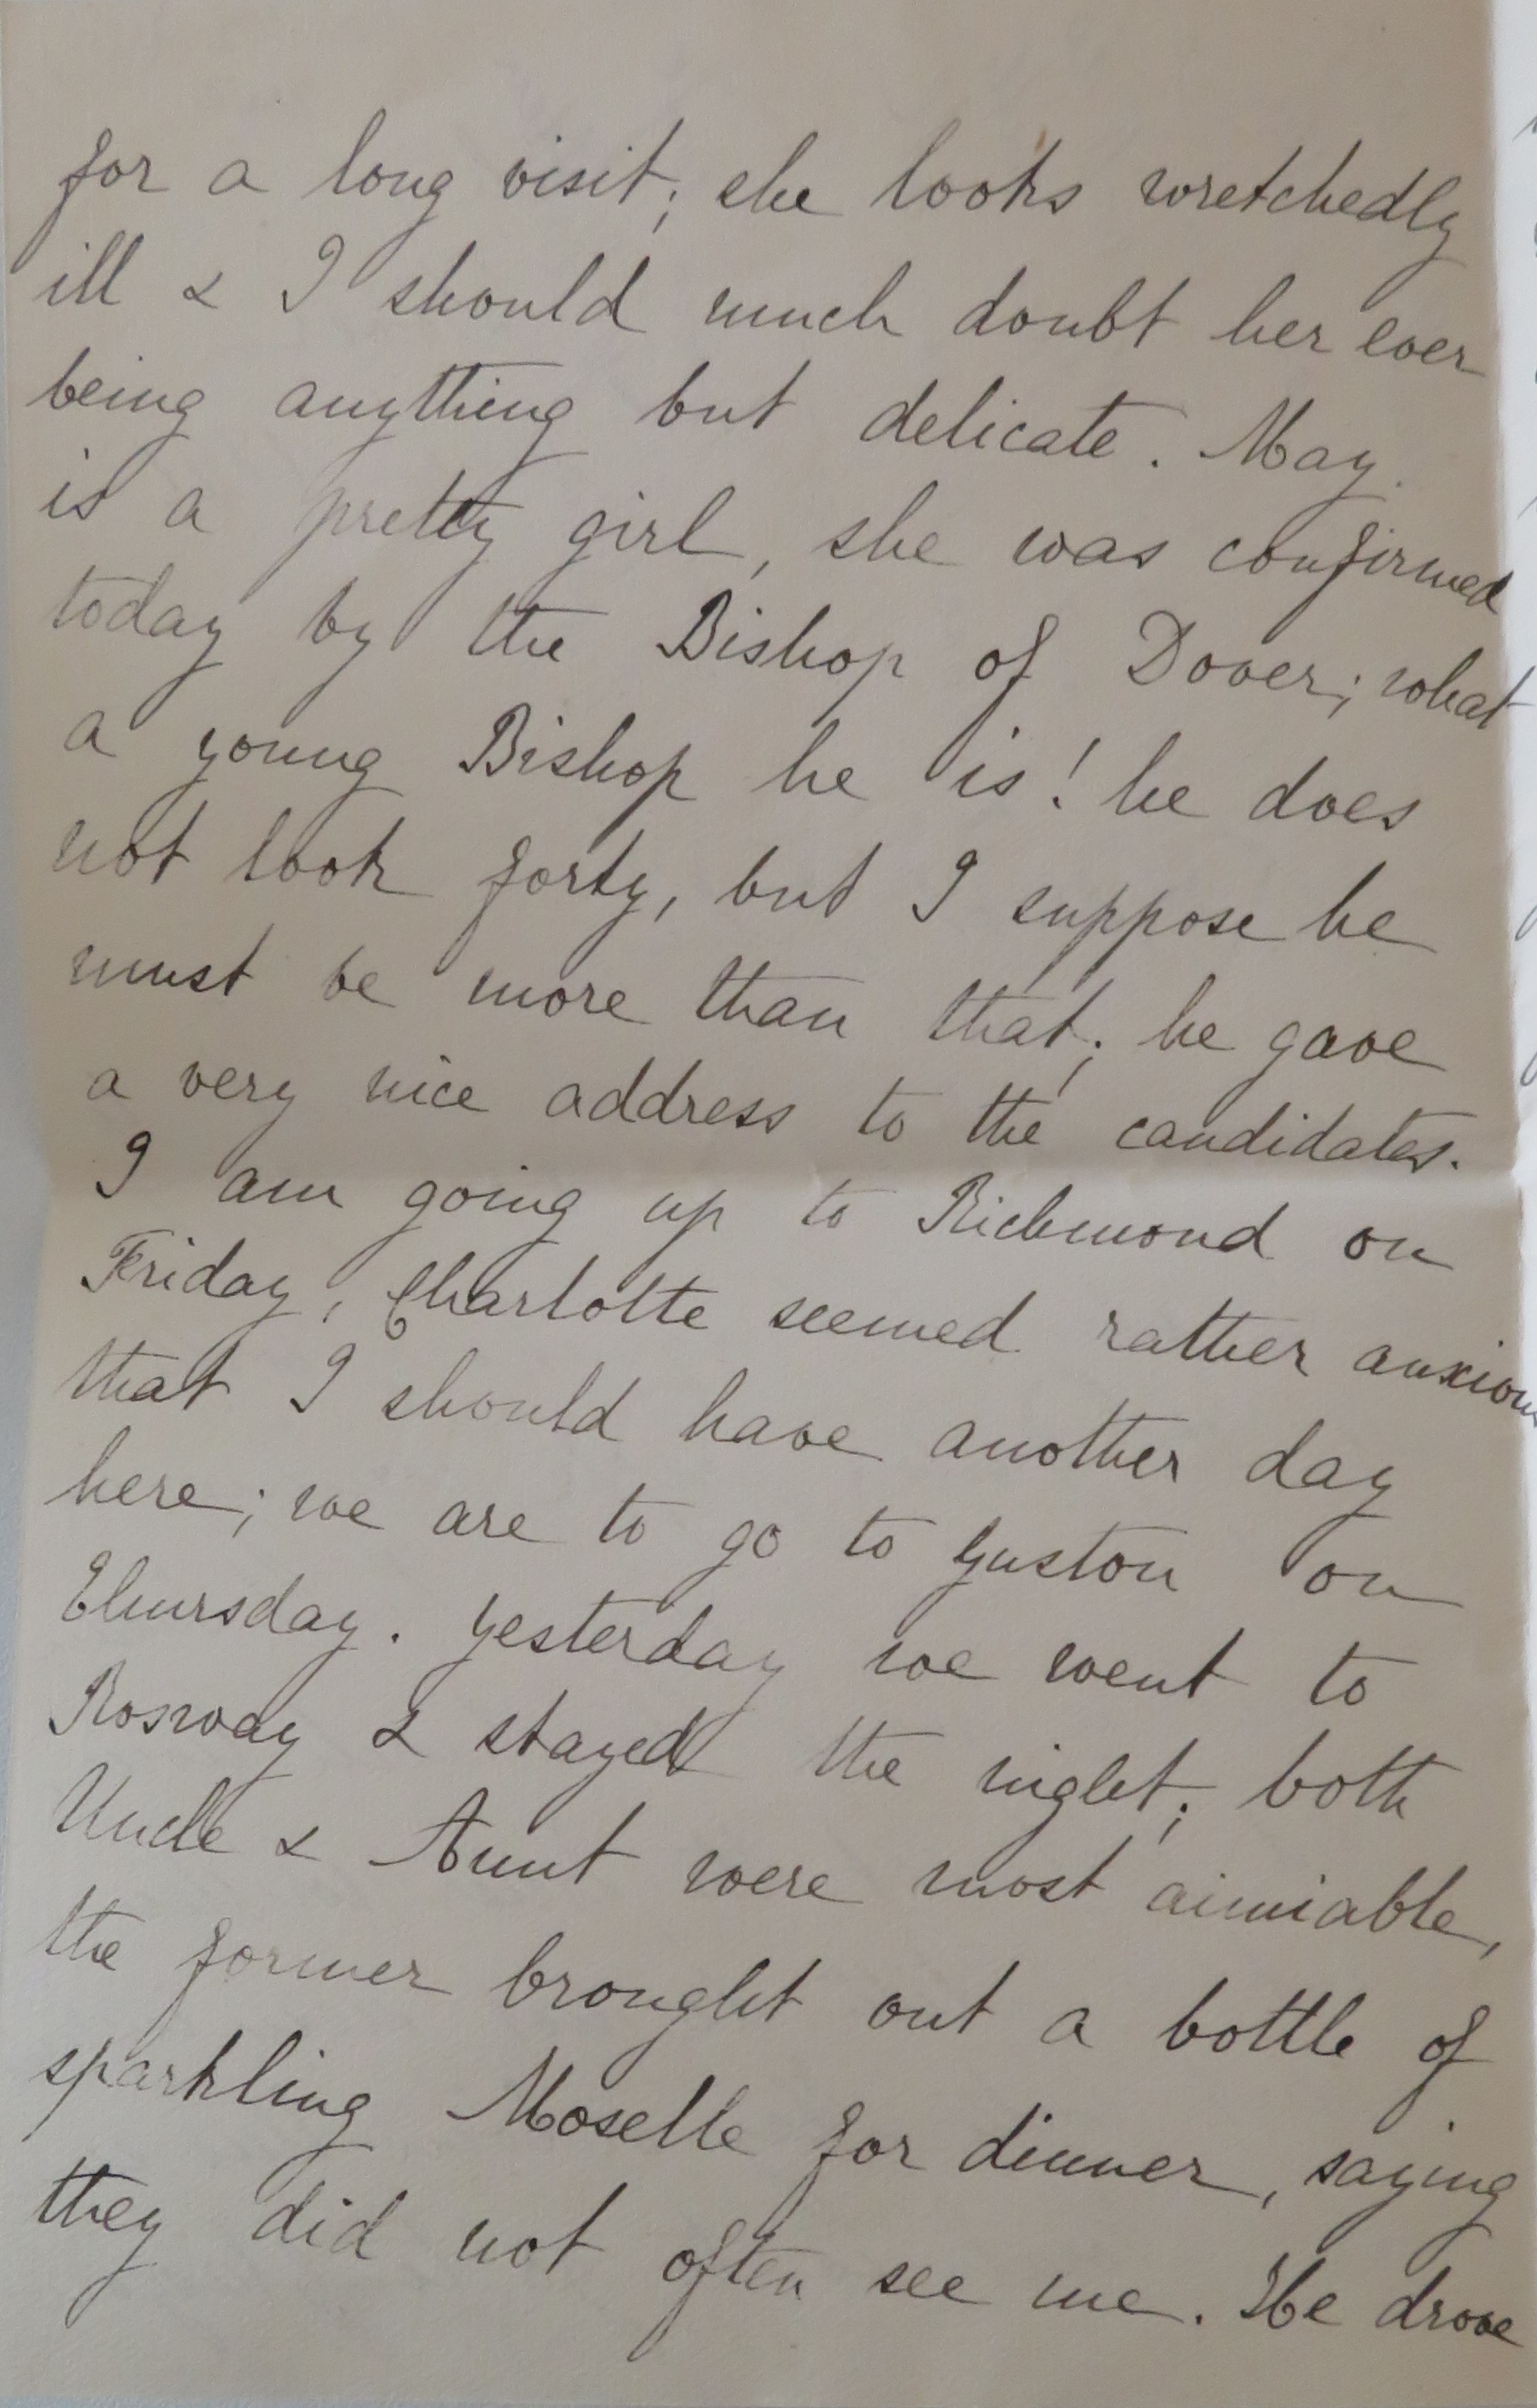 for a long visit; she looks wretchedly
ill & I should much doubt her ever
being anything but delicate. May
is a pretty girl, she was confirmed
today by the Bishop of Dover; what
a young Bishop he is! he does
not look forty, but I suppose he
must be more than that; he gave
a very nice address to the candidates.
I am going up to Richmond on
Friday, Charlotte seemed rather anxious
that I should have another day
here; we are to go to Guston on
Thursday. Yesterday we went to
& stayed the night; both
Uncle & Aunt were most aimiable,
the former brought out a bottle of
sparkling Moselle for dinner, saying
they did not often see me. He drove